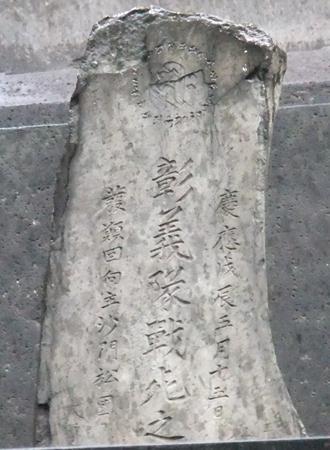 慶應戊辰五月十五日
彰義隊戦死之
發願回向主沙門松国